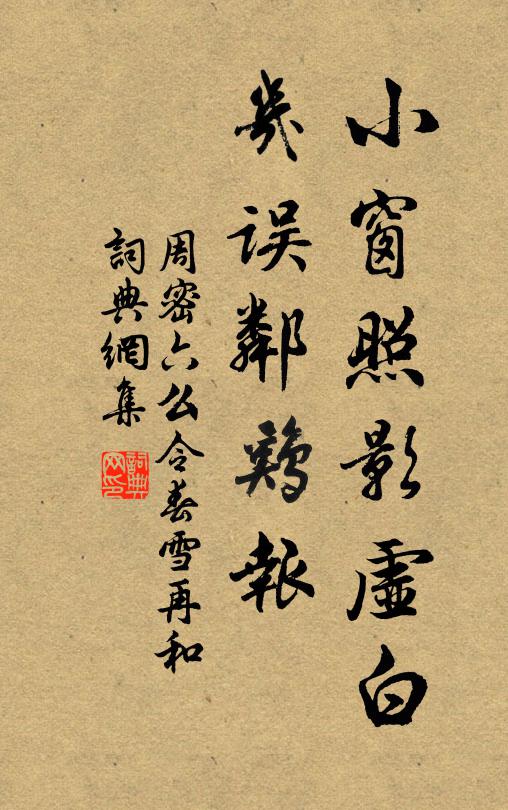 小窗照影虛白
幾误鄰鷄報
周密六么令春雪再和
詞典網集
詞典网印